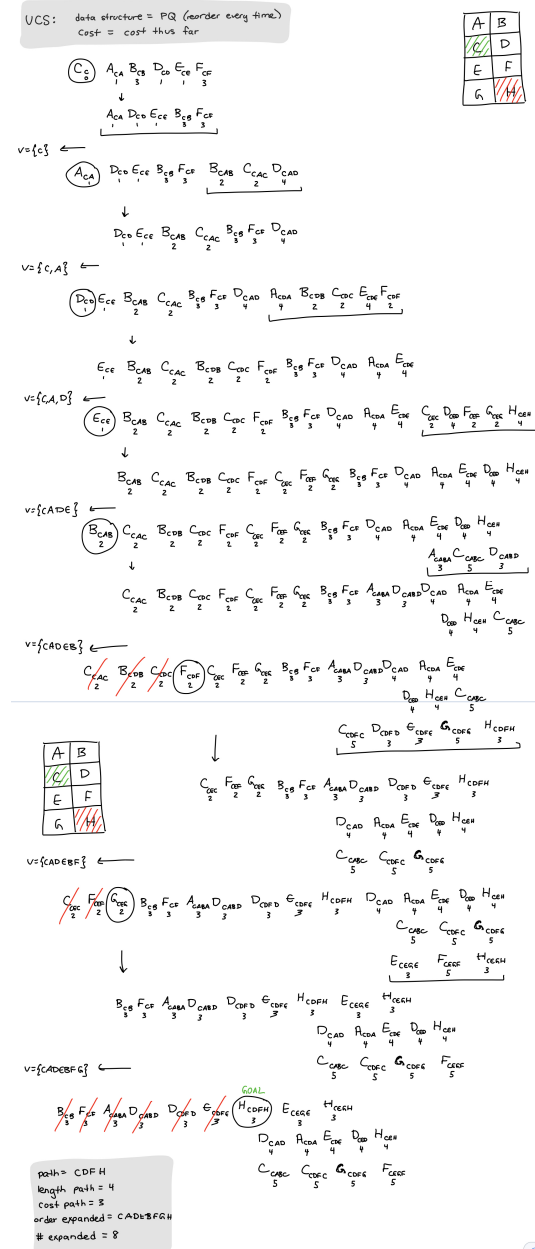 UCS: data structure = PQ (reorder every time)
cost = cost thus far
A B
C D
E F
G H
C A_CA B_CB D_CD E_CE F_CF
0 1 3 1 1 3
↓
A_CA D_CD E_CE B_CB F_CF
1 1 1 3 3
V={C} ←
A_CA D_CD E_CE B_CB F_CF B_CAB C_CAC D_CAD
1 1 1 3 3 2 2 4
↓
D_CD E_CE B_CAB C_CAC B_CB F_CF D_CAD
1 1 2 2 3 3 4
V={C,A} ←
D_CD E_CE B_CAB C_CAC B_CB F_CF D_CAD A_CDA B_CDB C_CDC E_CDE F_CDF
1 1 2 2 3 3 4 4 2 2 4 2
↓
E_CE B_CAB C_CAC B_CDB C_CDC F_CDF B_CB F_CF D_CAD A_CDA E_CDE
1 2 2 2 2 2 3 3 4 4 4
V={C,A,D} ←
E_CE B_CAB C_CAC B_CDB C_CDC F_CDF B_CB F_CF D_CAD A_CDA E_CDE C_CEC D_CED F_CEF G_CEG H_CEH
1 2 2 2 2 2 3 3 4 4 4 2 4 2 2 4
↓
B_CAB C_CAC B_CDB C_CDC F_CDF C_CEC F_CEF G_CEG B_CB F_CF D_CAD A_CDA E_CDE D_CED H_CEH
2 2 2 2 2 2 2 2 3 3 4 4 4 4 4
V={CADE} ←
B_CAB C_CAC B_CDB C_CDC F_CDF C_CEC F_CEF G_CEG B_CB F_CF D_CAD A_CDA E_CDE D_CED H_CEH
2 2 2 2 2 2 2 2 3 3 4 4 4 4 4
A_CABA C_CABC D_CABD
3 5 3
↓
C_CAC B_CDB C_CDC F_CDF C_CEC F_CEF G_CEG B_CB F_CF A_CABA D_CABD D_CAD A_CDA E_CDE
2 2 2 2 2 2 2 3 3 3 3 4 4 4
D_CED H_CEH C_CABC
4 4 5
V={CADEB} ←
C_CAC B_CDB C_CDC F_CDF C_CEC F_CEF G_CEG B_CB F_CF A_CABA D_CABD D_CAD A_CDA E_CDE
2 2 2 2 2 2 2 3 3 3 3 4 4 4
D_CED H_CEH C_CABC
4 4 5
C_CDFC D_CDFD E_CDFE G_CDFG H_CDFH
5 3 3 5 3
A B
C D
E F
G H
↓
C_CEC F_CEF G_CEG B_CB F_CF A_CABA D_CABD D_CDFD E_CDFE H_CDFH
2 2 2 3 3 3 3 3 3 3
D_CAD A_CDA E_CDE D_CED H_CEH
4 4 4 4 4
C_CABC C_CDFC G_CDFG
5 5 5
V={CADEBF} ←
C_CEC F_CEF G_CEG B_CB F_CF A_CABA D_CABD D_CDFD E_CDFE H_CDFH D_CAD A_CDA E_CDE D_CED H_CEH
2 2 2 3 3 3 3 3 3 3 4 4 4 4 4
C_CABC C_CDFC G_CDFG
5 5 5
E_CEGE F_CEGF H_CEGH
3 5 3
↓
B_CB F_CF A_CABA D_CABD D_CDFD E_CDFE H_CDFH E_CEGE H_CEGH
3 3 3 3 3 3 3 3 3
D_CAD A_CDA E_CDE D_CED H_CEH
4 4 4 4 4
C_CABC C_CDFC G_CDFG F_CEGF
5 5 5 5
V={CADEBFG} ←
GOAL
B_CB F_CF A_CABA D_CABD D_CDFD E_CDFE H_CDFH E_CEGE H_CEGH
3 3 3 3 3 3 3 3 3
D_CAD A_CDA E_CDE D_CED H_CEH
4 4 4 4 4
C_CABC C_CDFC G_CDFG F_CEGF
5 5 5 5
path = CDFH
length path = 4
cost path = 3
order expanded = CADEBFGH
# expanded = 8